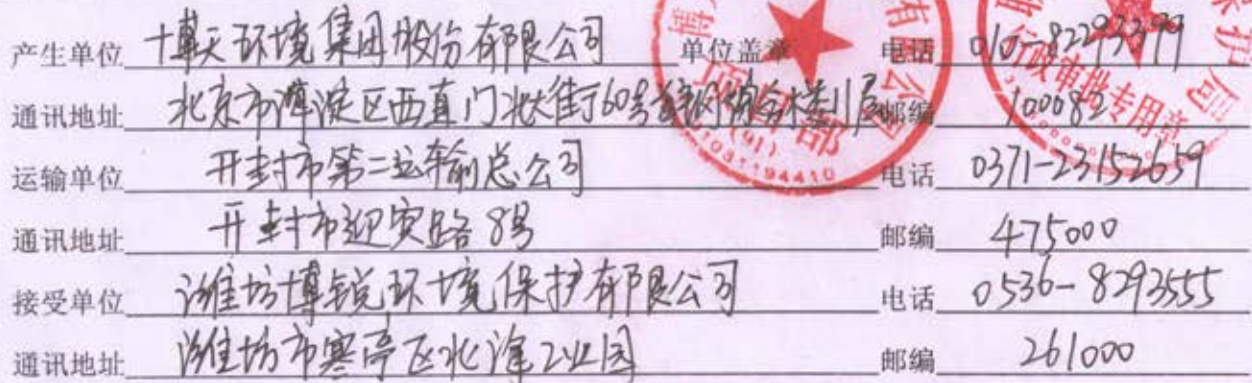 产生单位 博天环境集团股份有限公司 单位盖章 电话 010-82293399
通讯地址 北京市海淀区西直门北大街60号首钢综合楼11层 邮编 100082
运输单位 开封市第二运输总公司 电话 0371-23152659
通讯地址 开封市迎宾路8号 邮编 475000
接受单位 潍坊博锐环境保护有限公司 电话 0536-8293555
通讯地址 潍坊市寒亭区北海工业园 邮编 261000
项目部
(91)
行政审批专用章